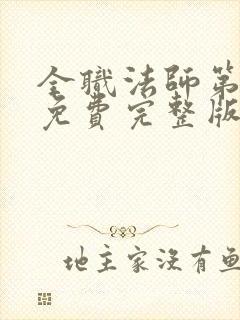 全職法師第
免費完整版
地主家沒有魚